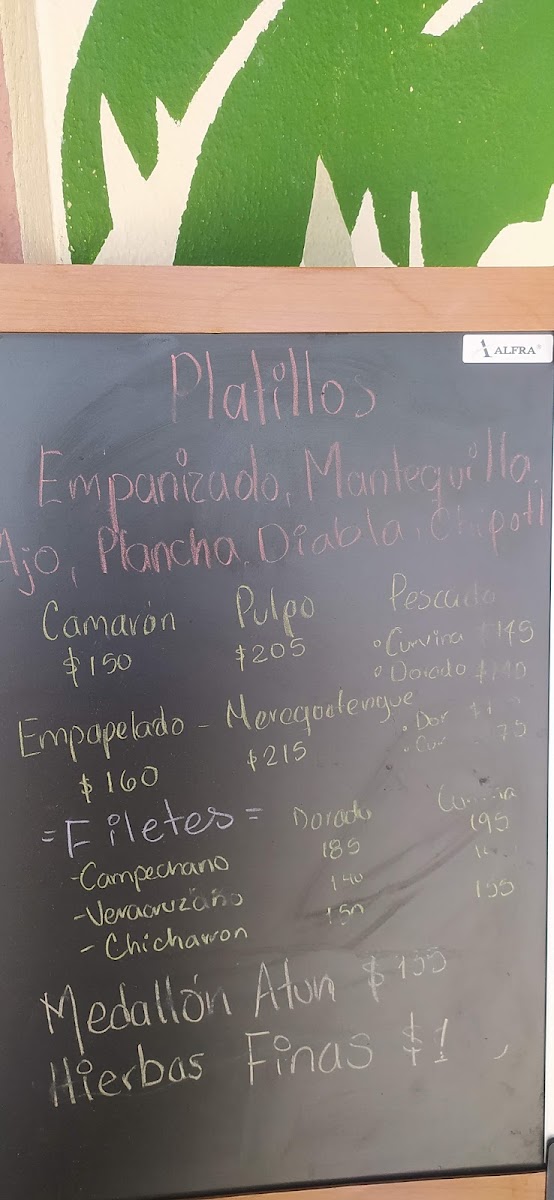 ALFRA
Platillos
Empanizado, Mantequilla,
Ajo, Plancha, Diabla, Chipotl
Camarón Pulpo Pescado
$150 $205 • Curvina $145
• Dorado
Empapelado - Meregoetengue
$160 $215 • Dor
• Cur 75
= Filetes = Dorado Curvina
- Campechano 185 195
- Veracruzano 140
- Chicharron 150 155
Medallón Atun $155
Hierbas Finas $1